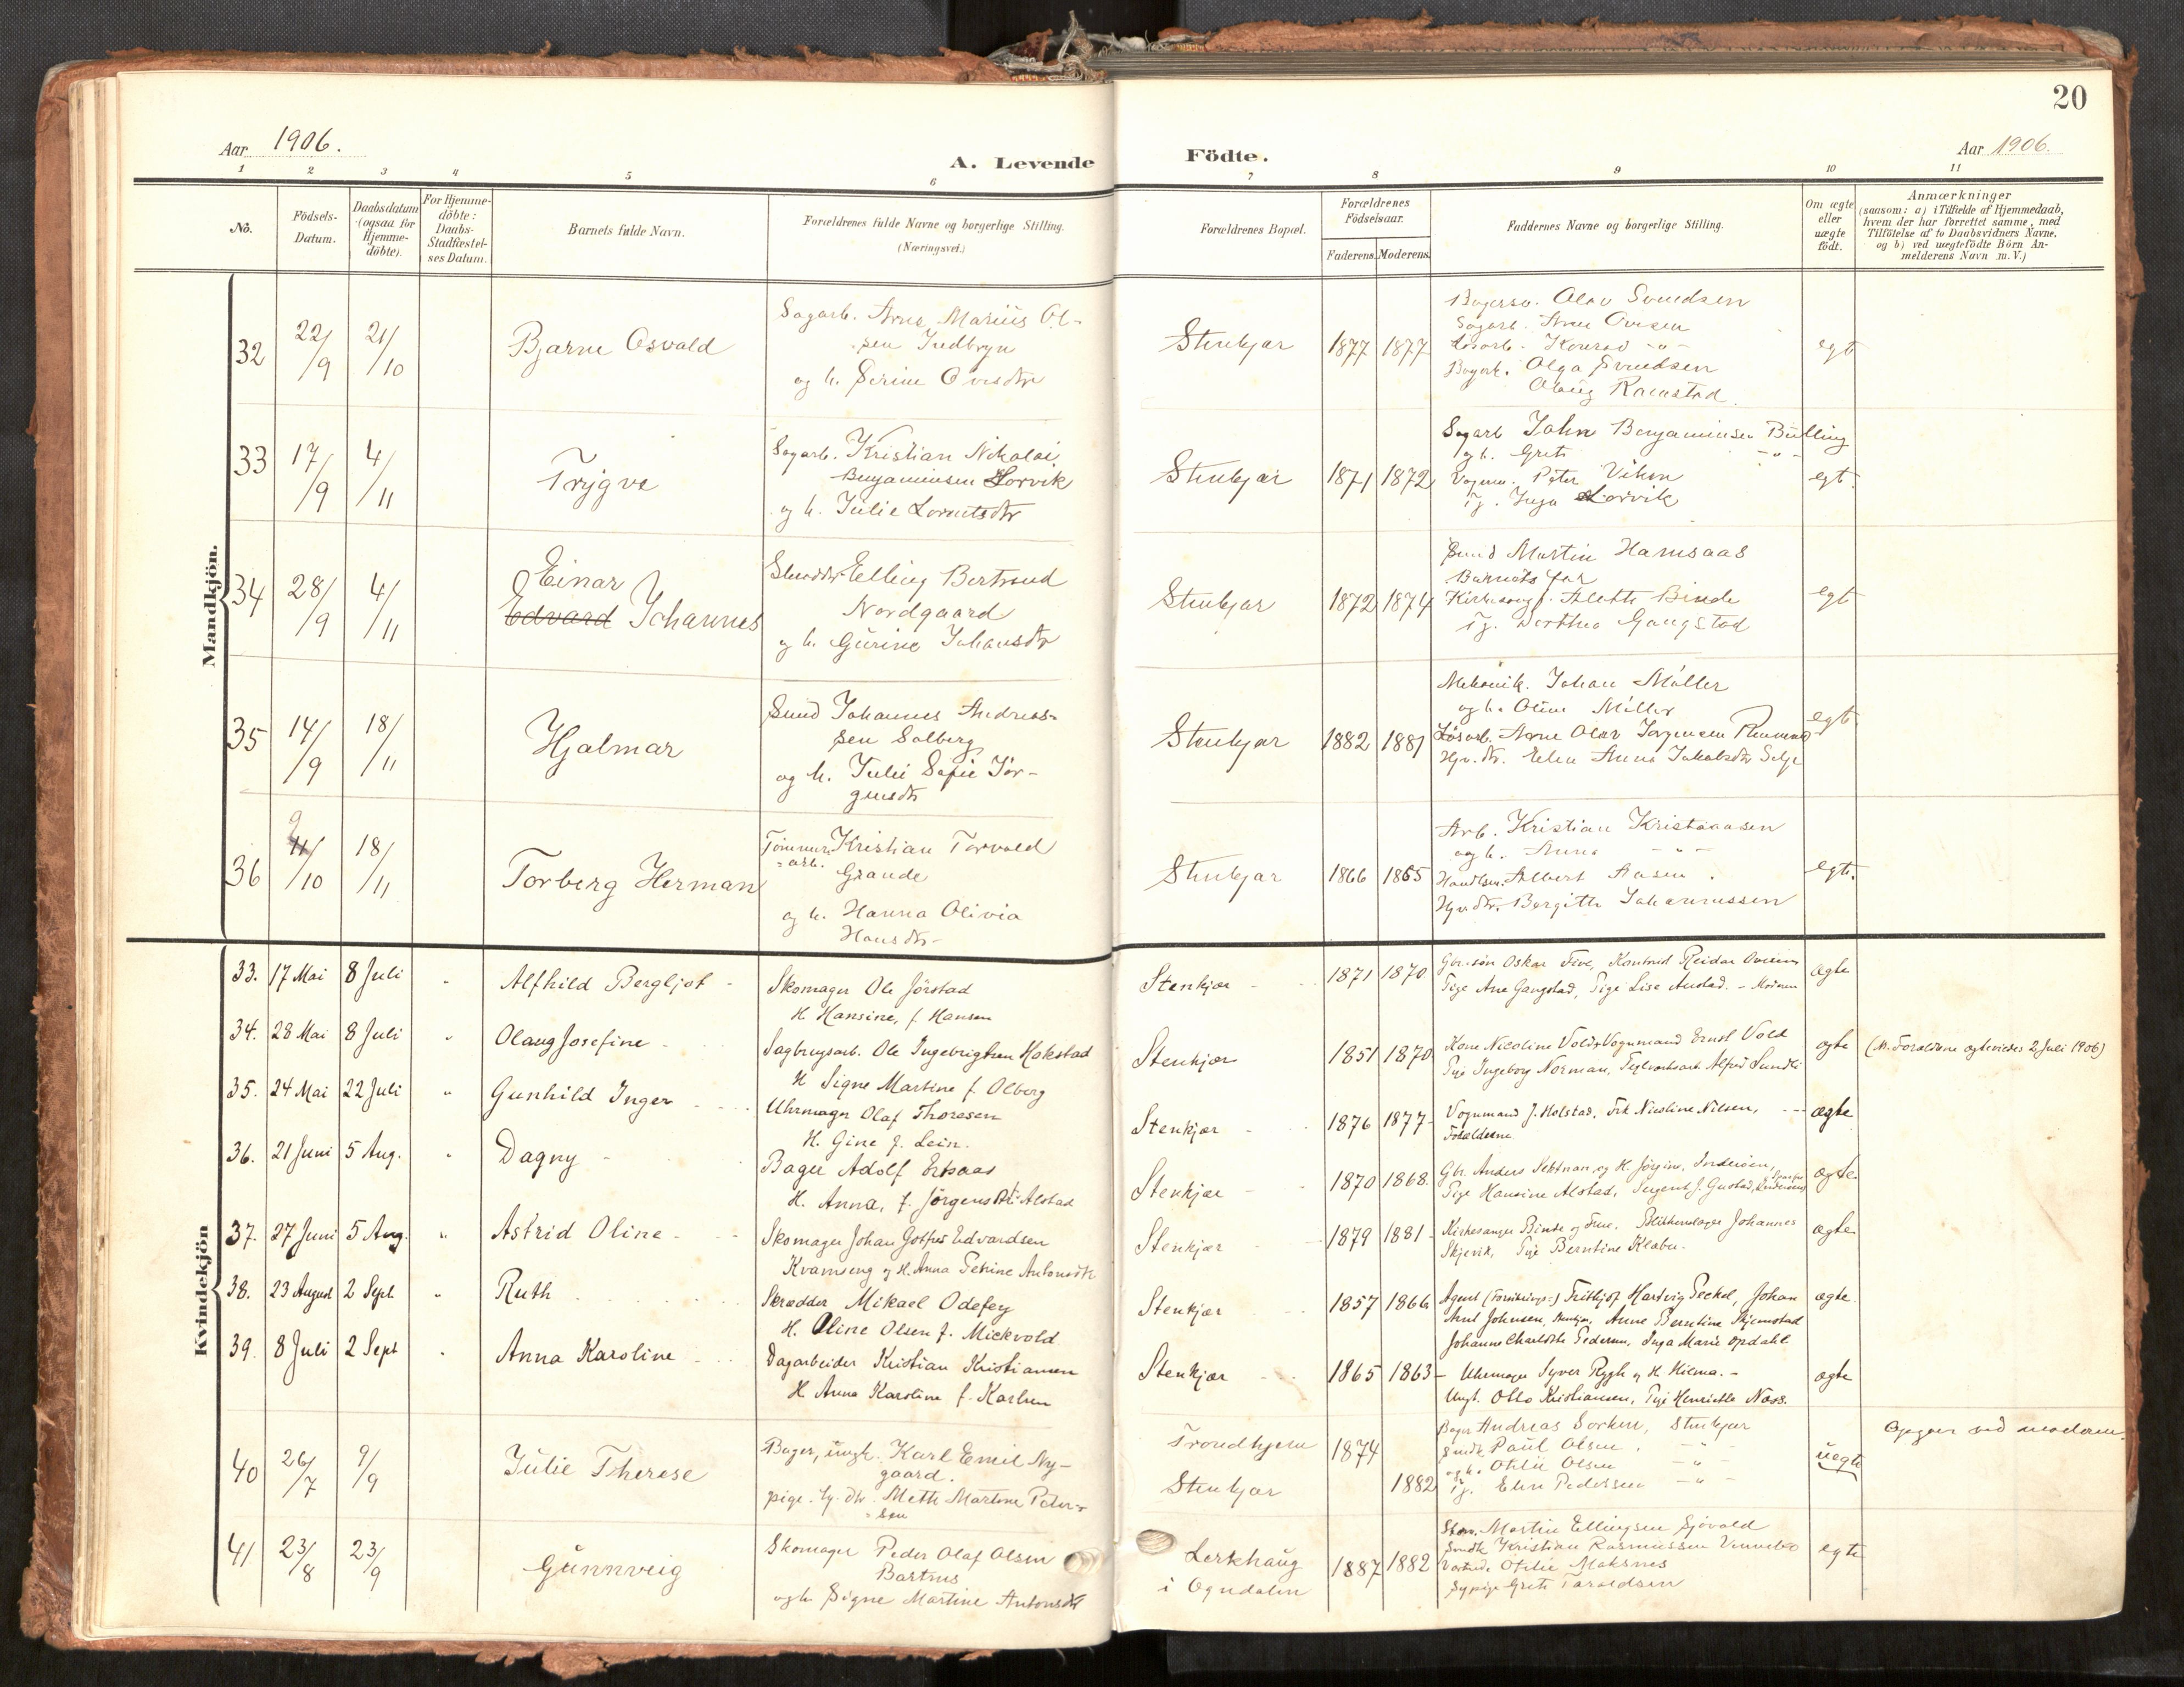 20
Aar 1906.
A. Levende Födte.
Aar 1906.
1 2 3 4 5 6 7 8 9 10 11
No.
Födsels-
Datum.
Daabsdatum
(ogsaa for
Hjemme-
döbte).
For Hjemme-
döbte:
Daabs-
Stadfæstel-
ses Datum.
Barnets fulde Navn.
Forældrenes fulde Navne og borgerlige Stilling.
(Næringsvei.)
Forældrenes Bopæl.
Forældrenes
Födselsaar.
Faderens. Moderens.
Faddernes Navne og borgerlige Stilling.
Om ægte
eller
uægte
födt.
Anmærkninger
(saasom: a) i Tilfælde af Hjemmedaab,
hvem der har forrettet samme, med
Tilföielse af to Daabsvidners Navne,
og b) ved uægtefödte Börn An-
melderens Navn m. V.)
Mandkjön.
32 22/9 21/10 Bjarne Osvald
Sagarb. Arne Marius Ol-
sen Indbryn
og h. Serine Ovesdtr
Stenkjær 1877 1877
Olav Svendsen
Sagarb. Arne Ovesen
Konrad -"-
Olga Svendsen
Olaug Ramstad.
egt
33 17/9 4/11 Trygve
Sagarb. Kristian Nikolai
Benjaminsen Lorvik
og h. Julie Lorentsdtr
Stenkjær 1871 1872
Sagarb John Benjaminsen Bulling
og h. Grete -"-
Vognm. Peter Viken
Pg. Inga Lorvik
egt.
34 28/9 4/11 Einar
Edvard Johannes
Elling Bertrand
Nordgaard
og h. Gurine Johansdtr
Stenkjær 1872 1874
Smed Martin Hamsaas
Barnets far
Kirkesang f. Alette Binde
Pg. Dorthea Gangstad
egt
35 14/9 18/11 Hjalmar
Smed Johannes Andreas-
sen Solberg
og h. Julie Sofie Jör-
gensdtr
Stenkjær 1882 1881
Mekanik. Johan Möller
og h. Oline Möller
Lösarb. Arne Olav Jörgensen
Hjv. dtr. Elen Anna Jakobsdtr Selje
egt
36 9/10 18/11 Torberg Herman
Tömmer-
arb. Kristian Torvald
Grande
og h. Hanna Olivia
Hansdtr-
Stenkjær 1866 1865
Arb. Kristian Kristiansen
og h. Anna -"-
Handlsm. Albert Aasen.
Hjv. dtr. Bergitte Johannessen
egte.
Kvindekjön
33. 17 Mai 8 Juli " Alfhild Bergljot -
Skomager Ole Jörstad
H. Hansine, f. Hansen
Stenkjær - 1871 1870
Gbr.sön Oskar Five, Kontorid Reidar
Pige Ane Gangstad, Pige Lise Austad. - Moderen
ægte
34. 28 Mai 8 Juli " Olaug Josefine -
Sagbrugsarb. Ole Ingebrigtsen Hokstad
H. Signe Martine f. Olberg
Stenkjær 1851 1870
Kone Nicoline Vold, Vognmand Ernst Vold
Pige Ingeborg Norman, Teglverksarb. Alfred Sundli
ægte (M. Forældrene ægteviedes 2 Juli 1906)
35. 24 Mai 22 Juli " Gunhild Inger
Uhrmager Olaf Thoresen
H. Gine f. Lein.
Stenkjær - 1876 1877
Vognmand J. Holstad, Frk Nicoline Nilsen, - -
Forældrene
ægte
36. 21 Juni 5 Aug. " Dagny -
Bager Adolf
H. Anna, f. Jörgensdtr Alstad
Stenkjær - 1870 1868.
Gbr. Anders og H. Jörgine, Inderöen,
Pige Hansine Alstad, Sergent J. Gustad,
ægte
37. 27 Juni 5 Aug. " Astrid Oline -
Skomager Johan Gotfred Edvardsen
Kvamseng og H. Anna Petrine Antonsdtr
Stenkjær 1879 1881
Kirkesanger Binde og Frue. Johannes
Skjevik, Pige Berntine Klæbu.
ægte
38. 23 August 2 Sept. " Ruth
Skrædder Mikael Odefey
H. Oline Olsen f. Mickvold
Stenkjær 1857 1866
Agent (Forsikrings-) Frithjof Hartvig Peckel, Johan
Arnt Johnsen, Anne Berntine Skjemstad
Johanne Charlotte Pedersen, Inga Marie Opdahl
ægte
39. 8 Juli 2 Sept " Anna Karoline
Dagarbeider Kristian Kristiansen
H. Anna Karoline f. Karlsen
Stenkjær 1865 1863
Uhrmager Syver Rygh og H. Hilma. -
Ungk. Otto Kristiansen, Pige Henriette Næss.
ægte
40 26/7 9/9 Julie Therese
Bager, ungk. Karl Emil Ny-
gaard.
pige. Hj. dtr. Mette Martine Peder-
sen
Trondhjem 1874
Stenkjær 1882
Bager Andreas Sorken, Stenkjær
Paul Olsen, -"-
og h. Otilie Olsen -"-
Pg. Elen Pedersen -"-
uegte
Opgivn ved moderen.
41 23/8 23/9 Gunnveig
Skomager Peder Olaf Olsen
Bartnes
og h. Signe Martine Antonsdtr
Lerkhaug
i Ogndalen
1887 1882
Martin Ellingsen Sjövold
Kristian Rasmussen
Ofelie Moksnes
Sypige Grete Taraldsen
egte